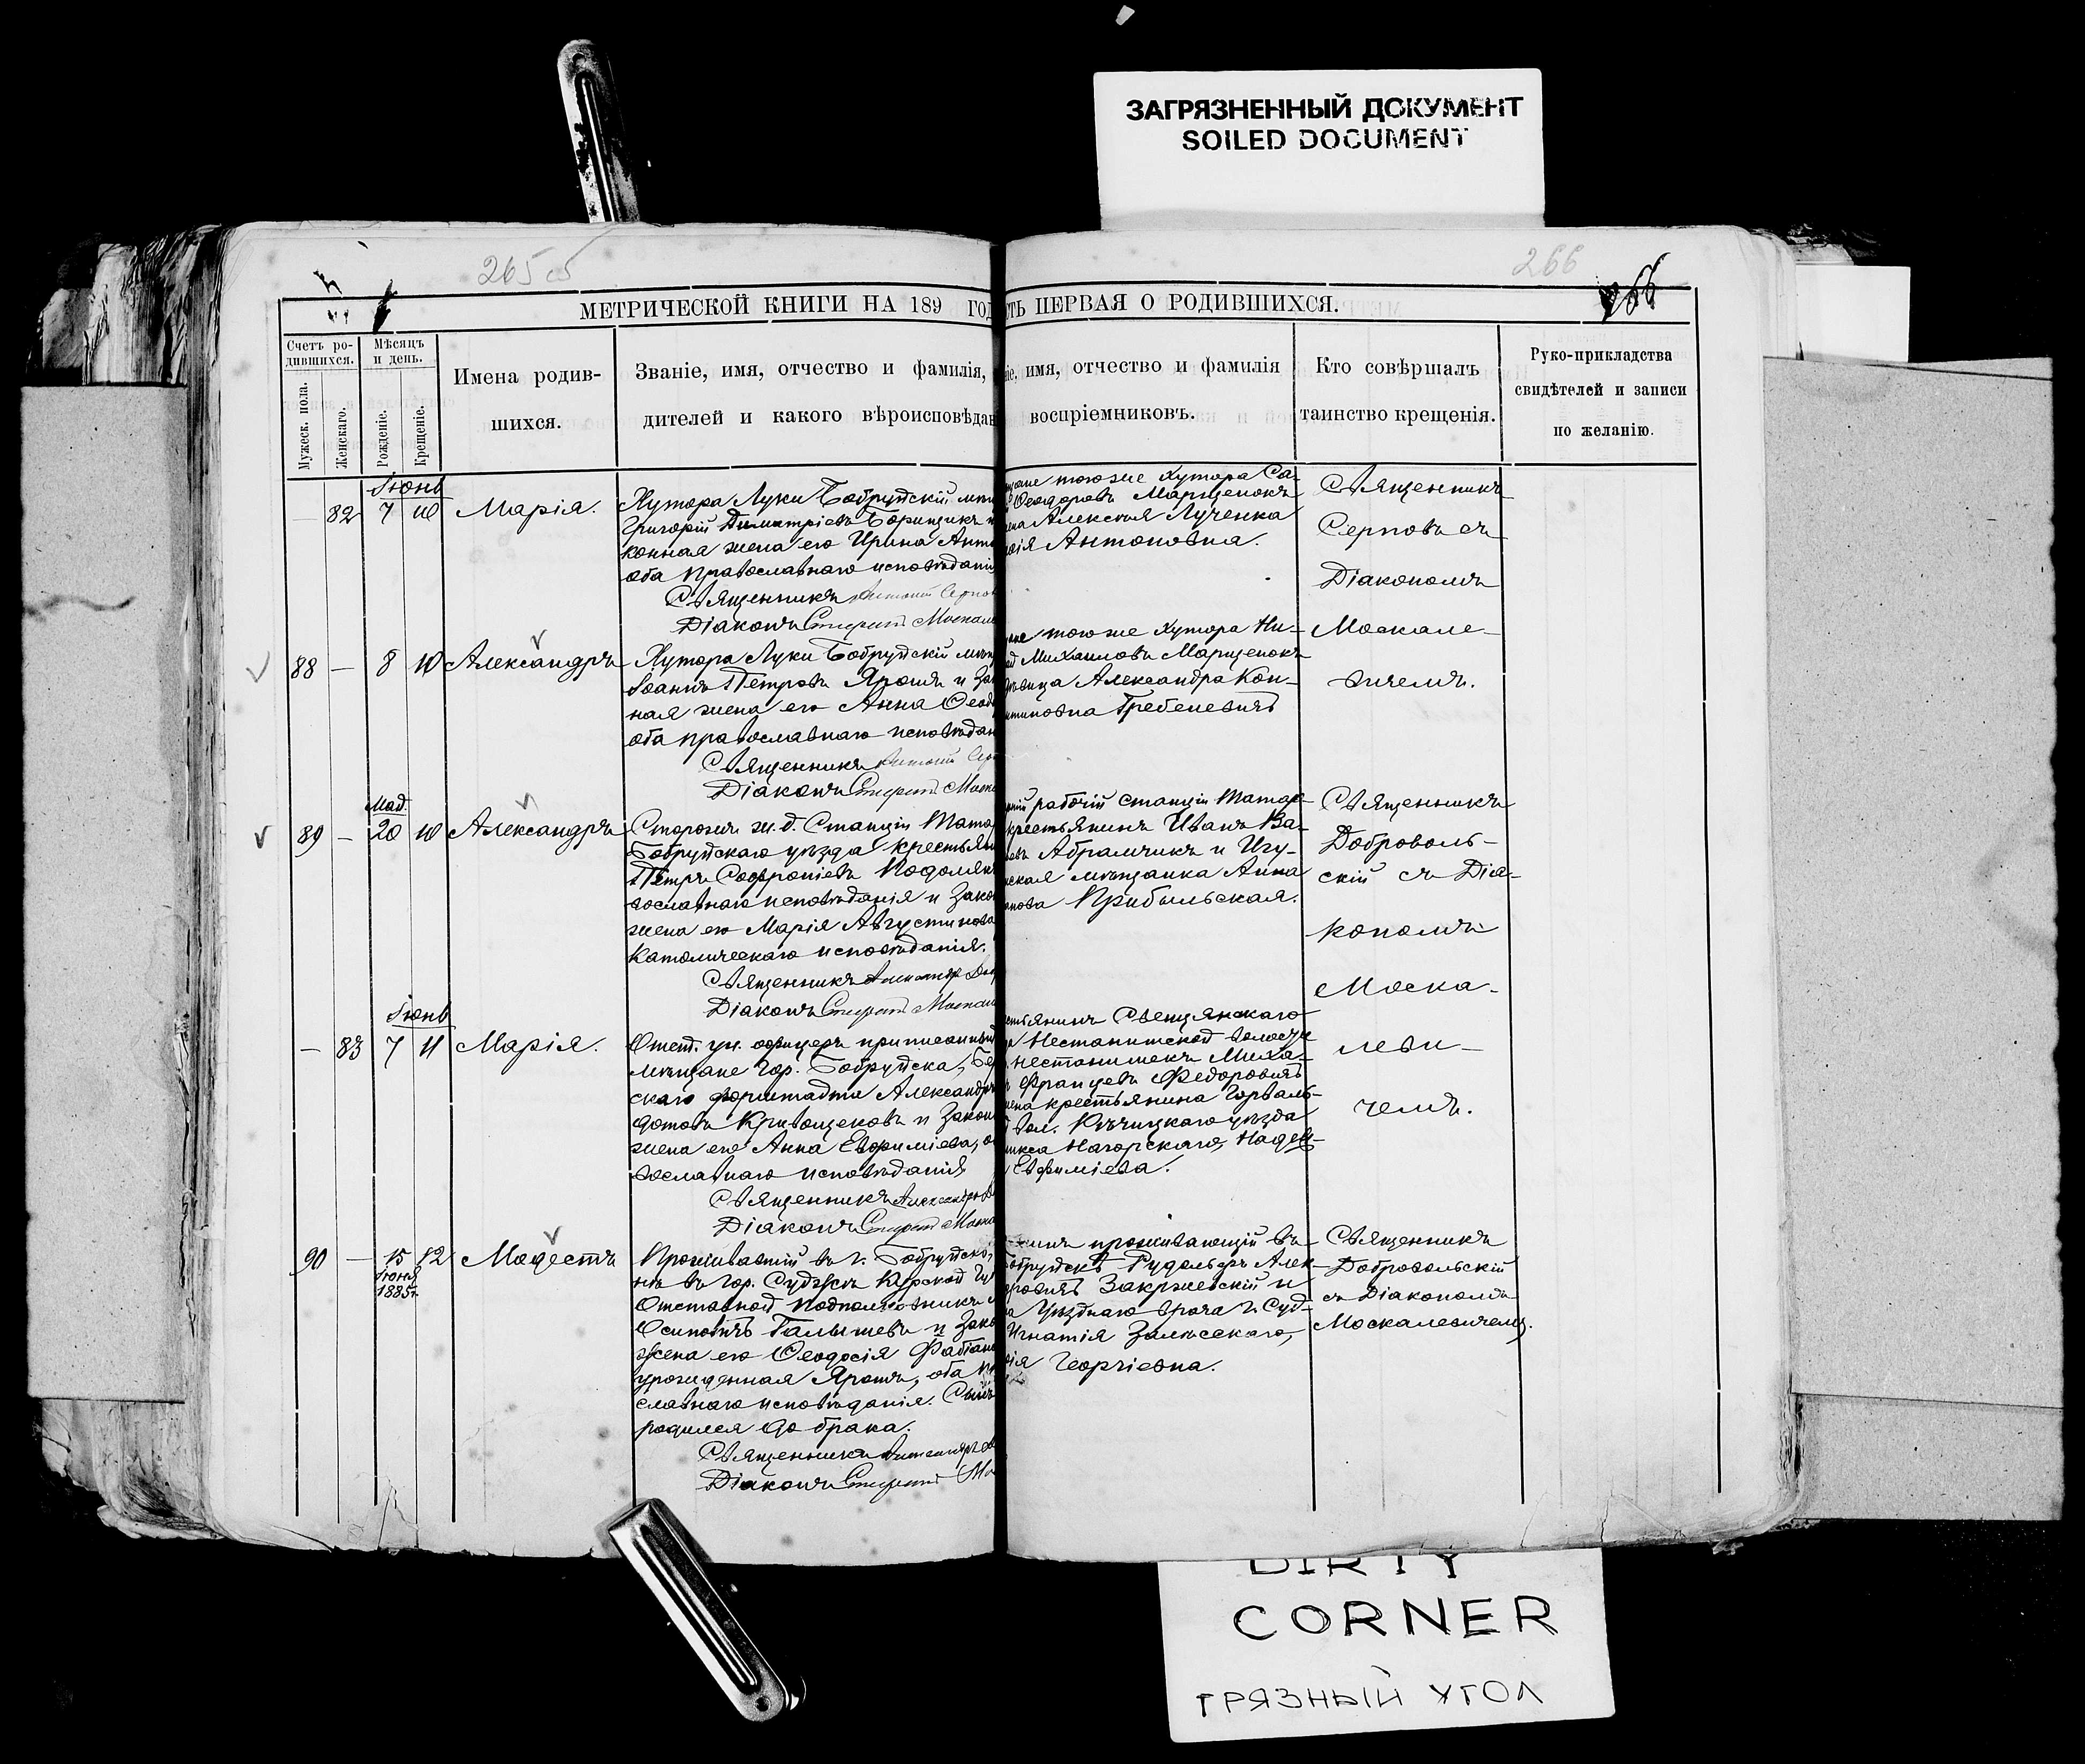 ЗАГРЯЗНЕННЫЙ ДОКУМЕНТ
SOILED DOCUMENT
265 об
266
266
МЕТРИЧЕСКОЙ КНИГИ НА 189 ГОД
ТЬ ПЕРВАЯ О РОДИВШИХСЯ.
Счетъ ро-
дившихся.
Мужеск. пола.
Женскаго.
Мѣсяцъ
и день.
Рожденіе.
Крещеніе.
Имена родив-
шихся.
Званіе, имя, отчество и фамилія,
дителей и какого вѣроисповѣдан
іе, имя, отчество и фамилія
воспріемниковъ.
Кто совѣршалъ
таинство крещенія.
Руко-прикладства
свидѣтелей и записи
по желанію.
Іюнь
— 82 7 10 Марія.
Хутора Луки Бобруйскій мѣщ
Григорій Димитріевъ Борищикъ и
конная жена его Ирина Анто
оба православнаго исповѣданія
Священникъ Антоній Серпов
Діаконъ Спирид Москале
щане тогоже хутора Са-
Ѳеодоровъ Марщенокъ
на Алексѣя Лученка
сія Антоновна.
Священникъ
Серповъ съ
Діакономъ
Москале-
вичемъ.
88 — 8 10 Александръ
Хутора Луки Бобруйскій мѣщ
Іоаннъ Петровъ Ярошъ и зак
ная жена его Анна Ѳеодо
оба православнаго исповѣдан
Священникъ Антоній Сер
Діаконъ Спирид Моска
щане тогоже хутора Ни-
Михаиловъ Марщенокъ
дѣвица Александра Кон-
антиновна Гребеневичъ
Май
89 — 20 10 Александръ
Сторожъ ж.д. Станціи Татар
Бобруйскаго уѣзда крестьян
Петръ Софроніевъ Подоляк
вославнаго исповѣданія и Закон
жена его Марія Августинова
католическаго исповѣданія.
Священникъ Александр Доб
Діаконъ Спирид Москале
рабочій станціи Татар-
крестьянинъ Иванъ Ва-
Абрамчикъ и Игу-
нская мѣщанка Анна
нова Прибыльская.
Священникъ
Доброволь-
скій съ Діа-
кономъ
Моска-
леви-
чемъ.
Іюнь
— 83 7 11 Марія.
Отст. ун. офицеръ приписанный
мѣщане Гор. Бобруйска, Бер
скаго форштадта Александръ
дотовъ Кривощековъ и Закон
жена его Анна Евфиміева, об
вославнаго исповѣданія
Священникъ Александръ Д
Діаконъ Спирид Моска
стьянинъ Свенцянскаго
Нестанишской волости
Нестанишекъ Миха-
Францевъ Федоровичъ
жена крестьянина Горваль-
вол. Рѣчицкаго уѣзда
Нагорскаго, Надеж-
Евфиміева.
90 — 15 12 Модестъ
Іюня
1885г.
Проживавшій въ г. Бобруйскѣ,
нѣ въ Гор. Суджѣ Курской Гу
Отставной Подполковникъ
Осиповичъ Галышевъ и Зако
жена его Ѳеодосія Фабіано
урожденная Ярошъ, оба пр
славнаго исповѣданія. Сынъ
родился до брака.
Священникъ Александръ До
Діаконъ Спирид Мо
проживающій въ
обруйскѣ Рудольфъ Алек-
дровичъ Закржевскій и
Уѣзднаго врача г. Суд-
Игнатія Залѣсскаго,
Георгіевна.
Священникъ
Добровольскій
съ Діакономъ
Москалевичемъ.
DIRTY
CORNER
ГРЯЗНЫЙ УГОЛ